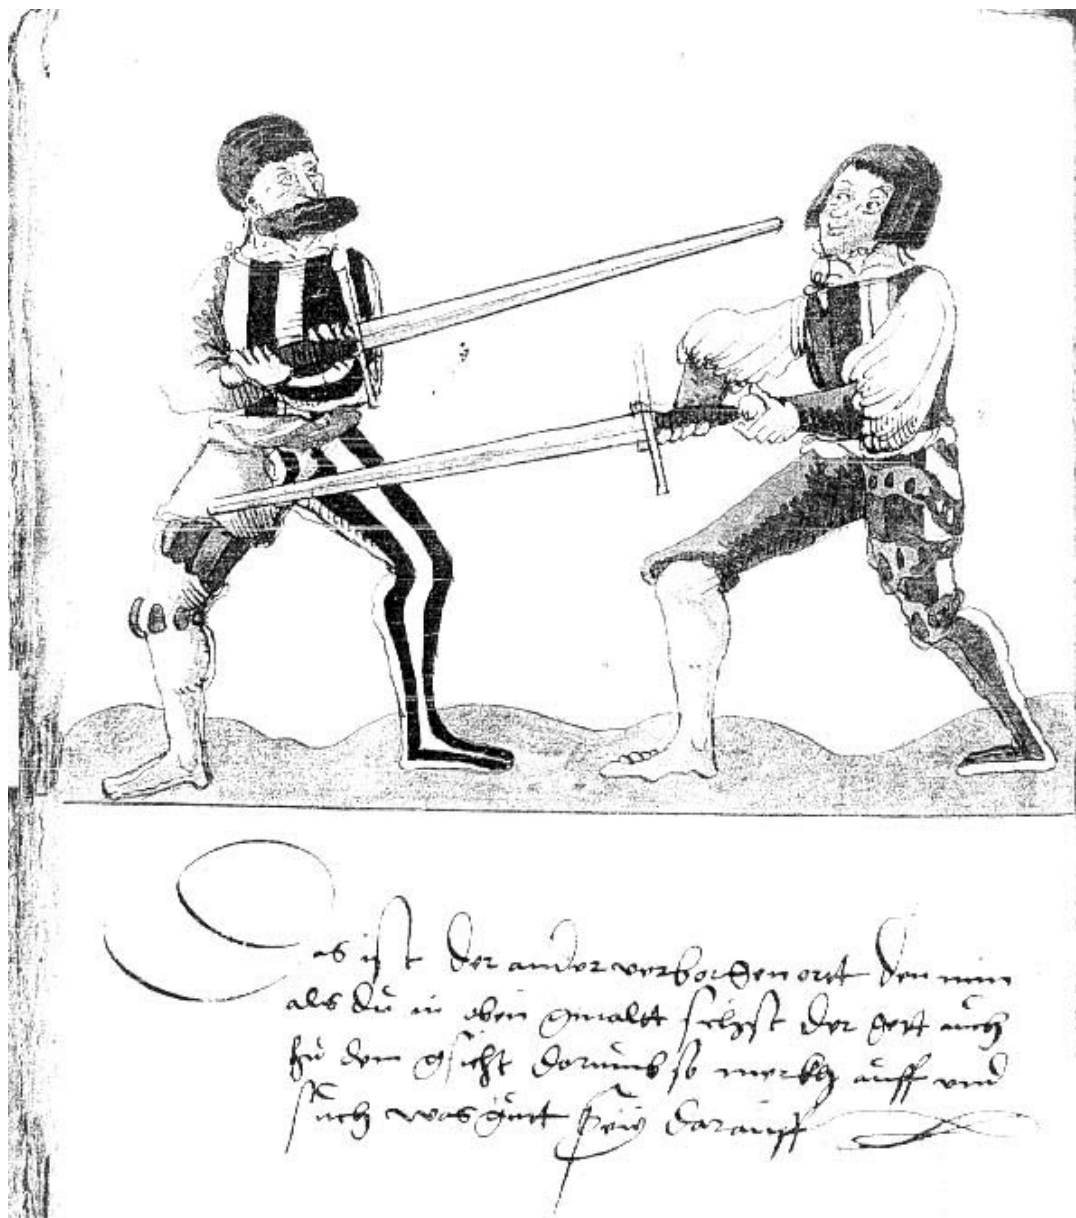 Das ist der ander verborgen ortt den nim
als du in oben gmaltt sichst der gett auch
zu dem gsicht dorumb so merkh auff und
such was gutt sey darauff